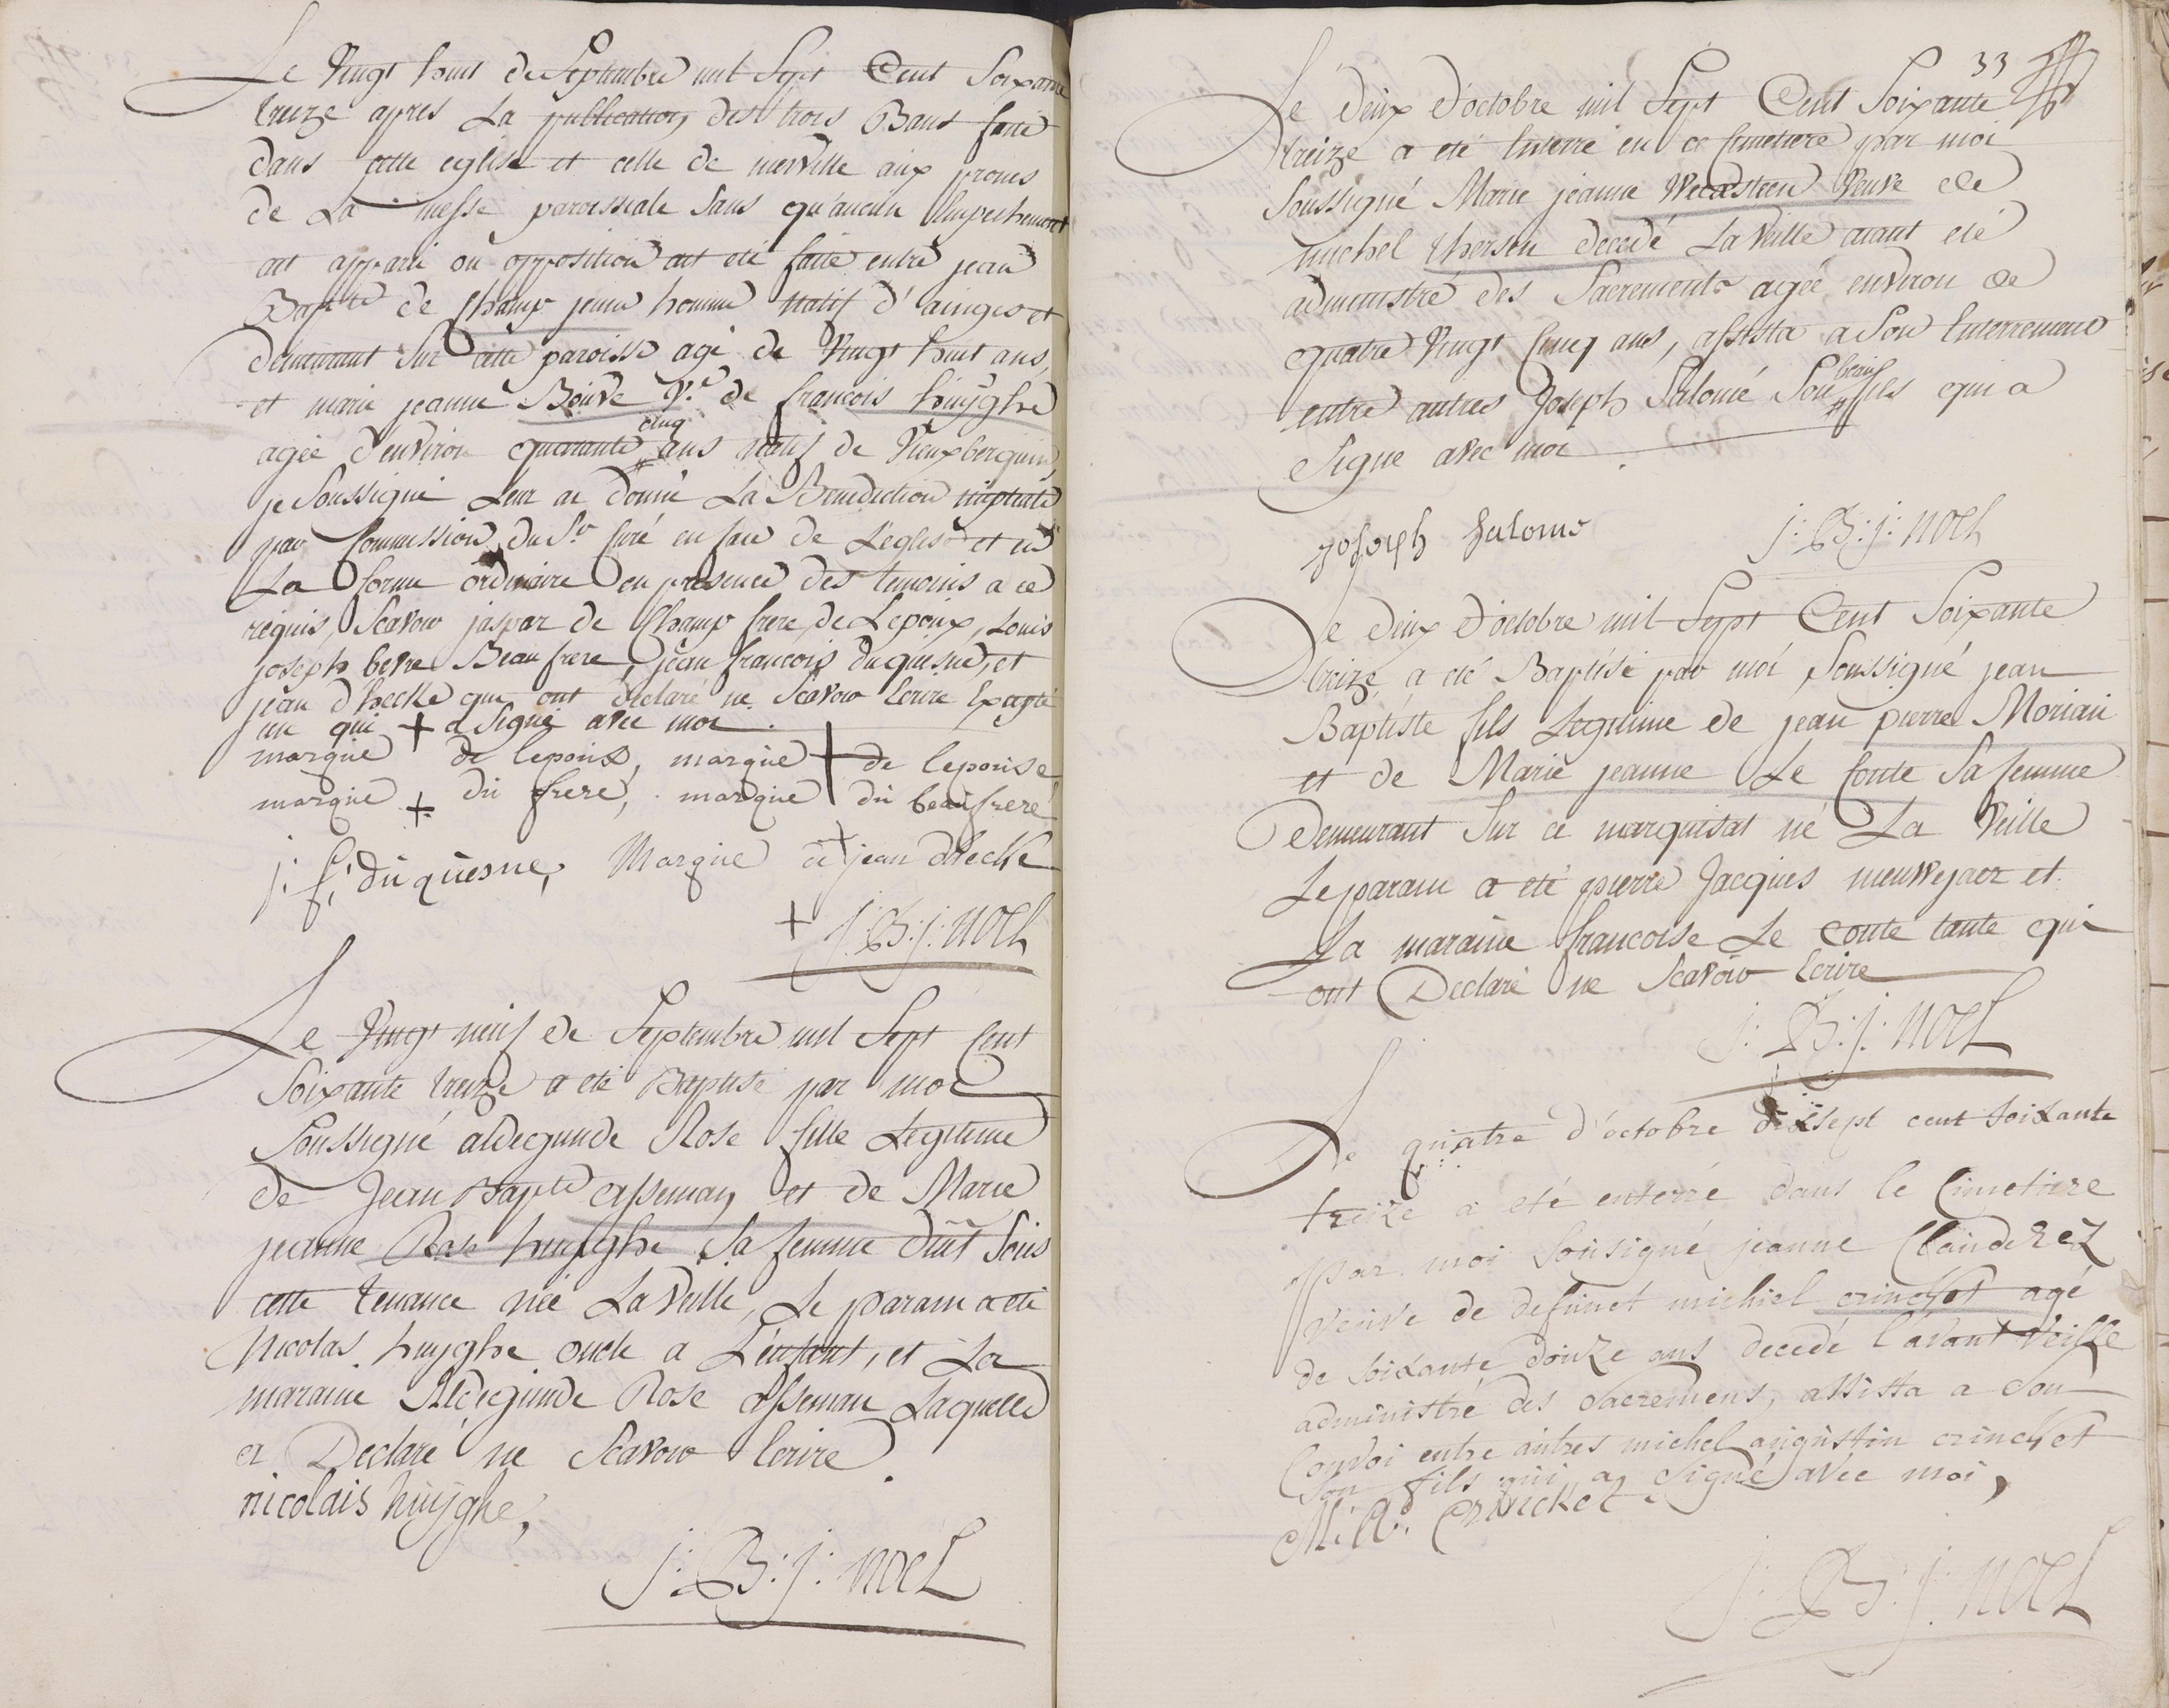 Le Vingt huit de Septembre mil Sept Cent Soixante
treize apres La publication des trois Bans faite
dans cette eglise et celle de merville aux prones
de La messe paroissiale Sans qu'aucun Empechement
ait apparu ou opposition ait eté faite entre jean
Bapte de Champ jeune homme natif d'
demeurant Sur cette paroisse agé de Vingt huit ans,
et marie jeanne Bouve Ve de francois huÿghe
agée d'environ quarante cinq ans natif de Vieuxberquin,
je Soussigné Leur ai donné La Benediction nuptiale
par Commission du Sr Curé en face de L'eglise et en
La forme ordinaire en presence des temoins a ce
requis, Scavoir jaspar de Champ frere de Lepoux, Louis
joseph Beau frere, jean francois duquesne, et
jean d'hecke qui ont declaré ne Scavoir Ecrire Excepté
un qui a Signé avec moi.
marque + de lepoux, marque + de lepouse
marque + du frere, marque du beaufrere
j: f: duquesne, Marque de jean dhecke
+ J:B:j: NOEL
Le Vingt neuf de Septembre mil Sept Cent
Soixante treize a eté Baptisé par moi
Soussigné aldegunde Rose fille Legitime
de Jean Bapte asseman et de Marie
jeanne Rose huyghe Sa femme dmt Sous
cette tenance née La Veille, Le parain a eté
Nicolas huyghe oncle a L'enfant, et La
maraine Aldegunde Rose asseman Laquelle
a Declaré ne Scavoir Ecrire.
nicolais huijghe,
J:B:J: NOEL
33
Le deux d'octobre mil Sept Cent Soixante
treize a eté Enterré en ce Cimetiere par moi
Soussigné Marie jeanne Veuve de
michel therson decedé La Veille aiant eté
administré des Sacrements agée environ de
quatre Vingt Cinq ans, assista a Son Enterrement
entre autres Joseph Salomé Son beau fils qui a
Signe avec moi
Joseph Salome
J:B:j: NOEL
Le deux d'octobre mil Sept Cent Soixante
treize a eté Baptisé par moi Soussigné jean
Baptiste fils Legitime de jean pierre Moriau
et de Marie jeanne Le Conte Sa femme
demeurant Sur ce marquisat né La Veille
Le parain a eté pierre Jacques et
La maraine francoise Le Conte tante qui
ont Declaré ne Scavoir Ecrire
J:B:J: NOEL
Le quatre d'octobre dixsept cent soixante
treize a eté enterré dans le Cimetiere
par moi Sousigné jeanne Clauderez
veuve de defunct michiel crinchet agé
de soixante douze ans decedé l'avant veille
administré des Sacremens, assista a Son
Convoi entre autres michel augustin crincket
Son fils qui a Signé avec moi,
M: A: Crincket
J:B:J: NOEL